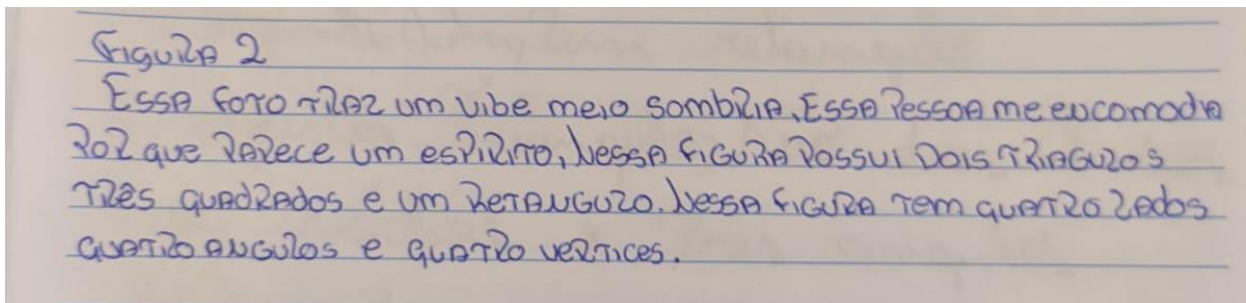 Figura 2
Essa foto traz um vibe meio sombria. Essa Pessoa me encomoda
Por que Parece um espirito, Nessa figura Possui Dois triagulos
três quadrados e um Retangulo. Nessa figura tem quatro lados
quatro angulos e quatro vertices.